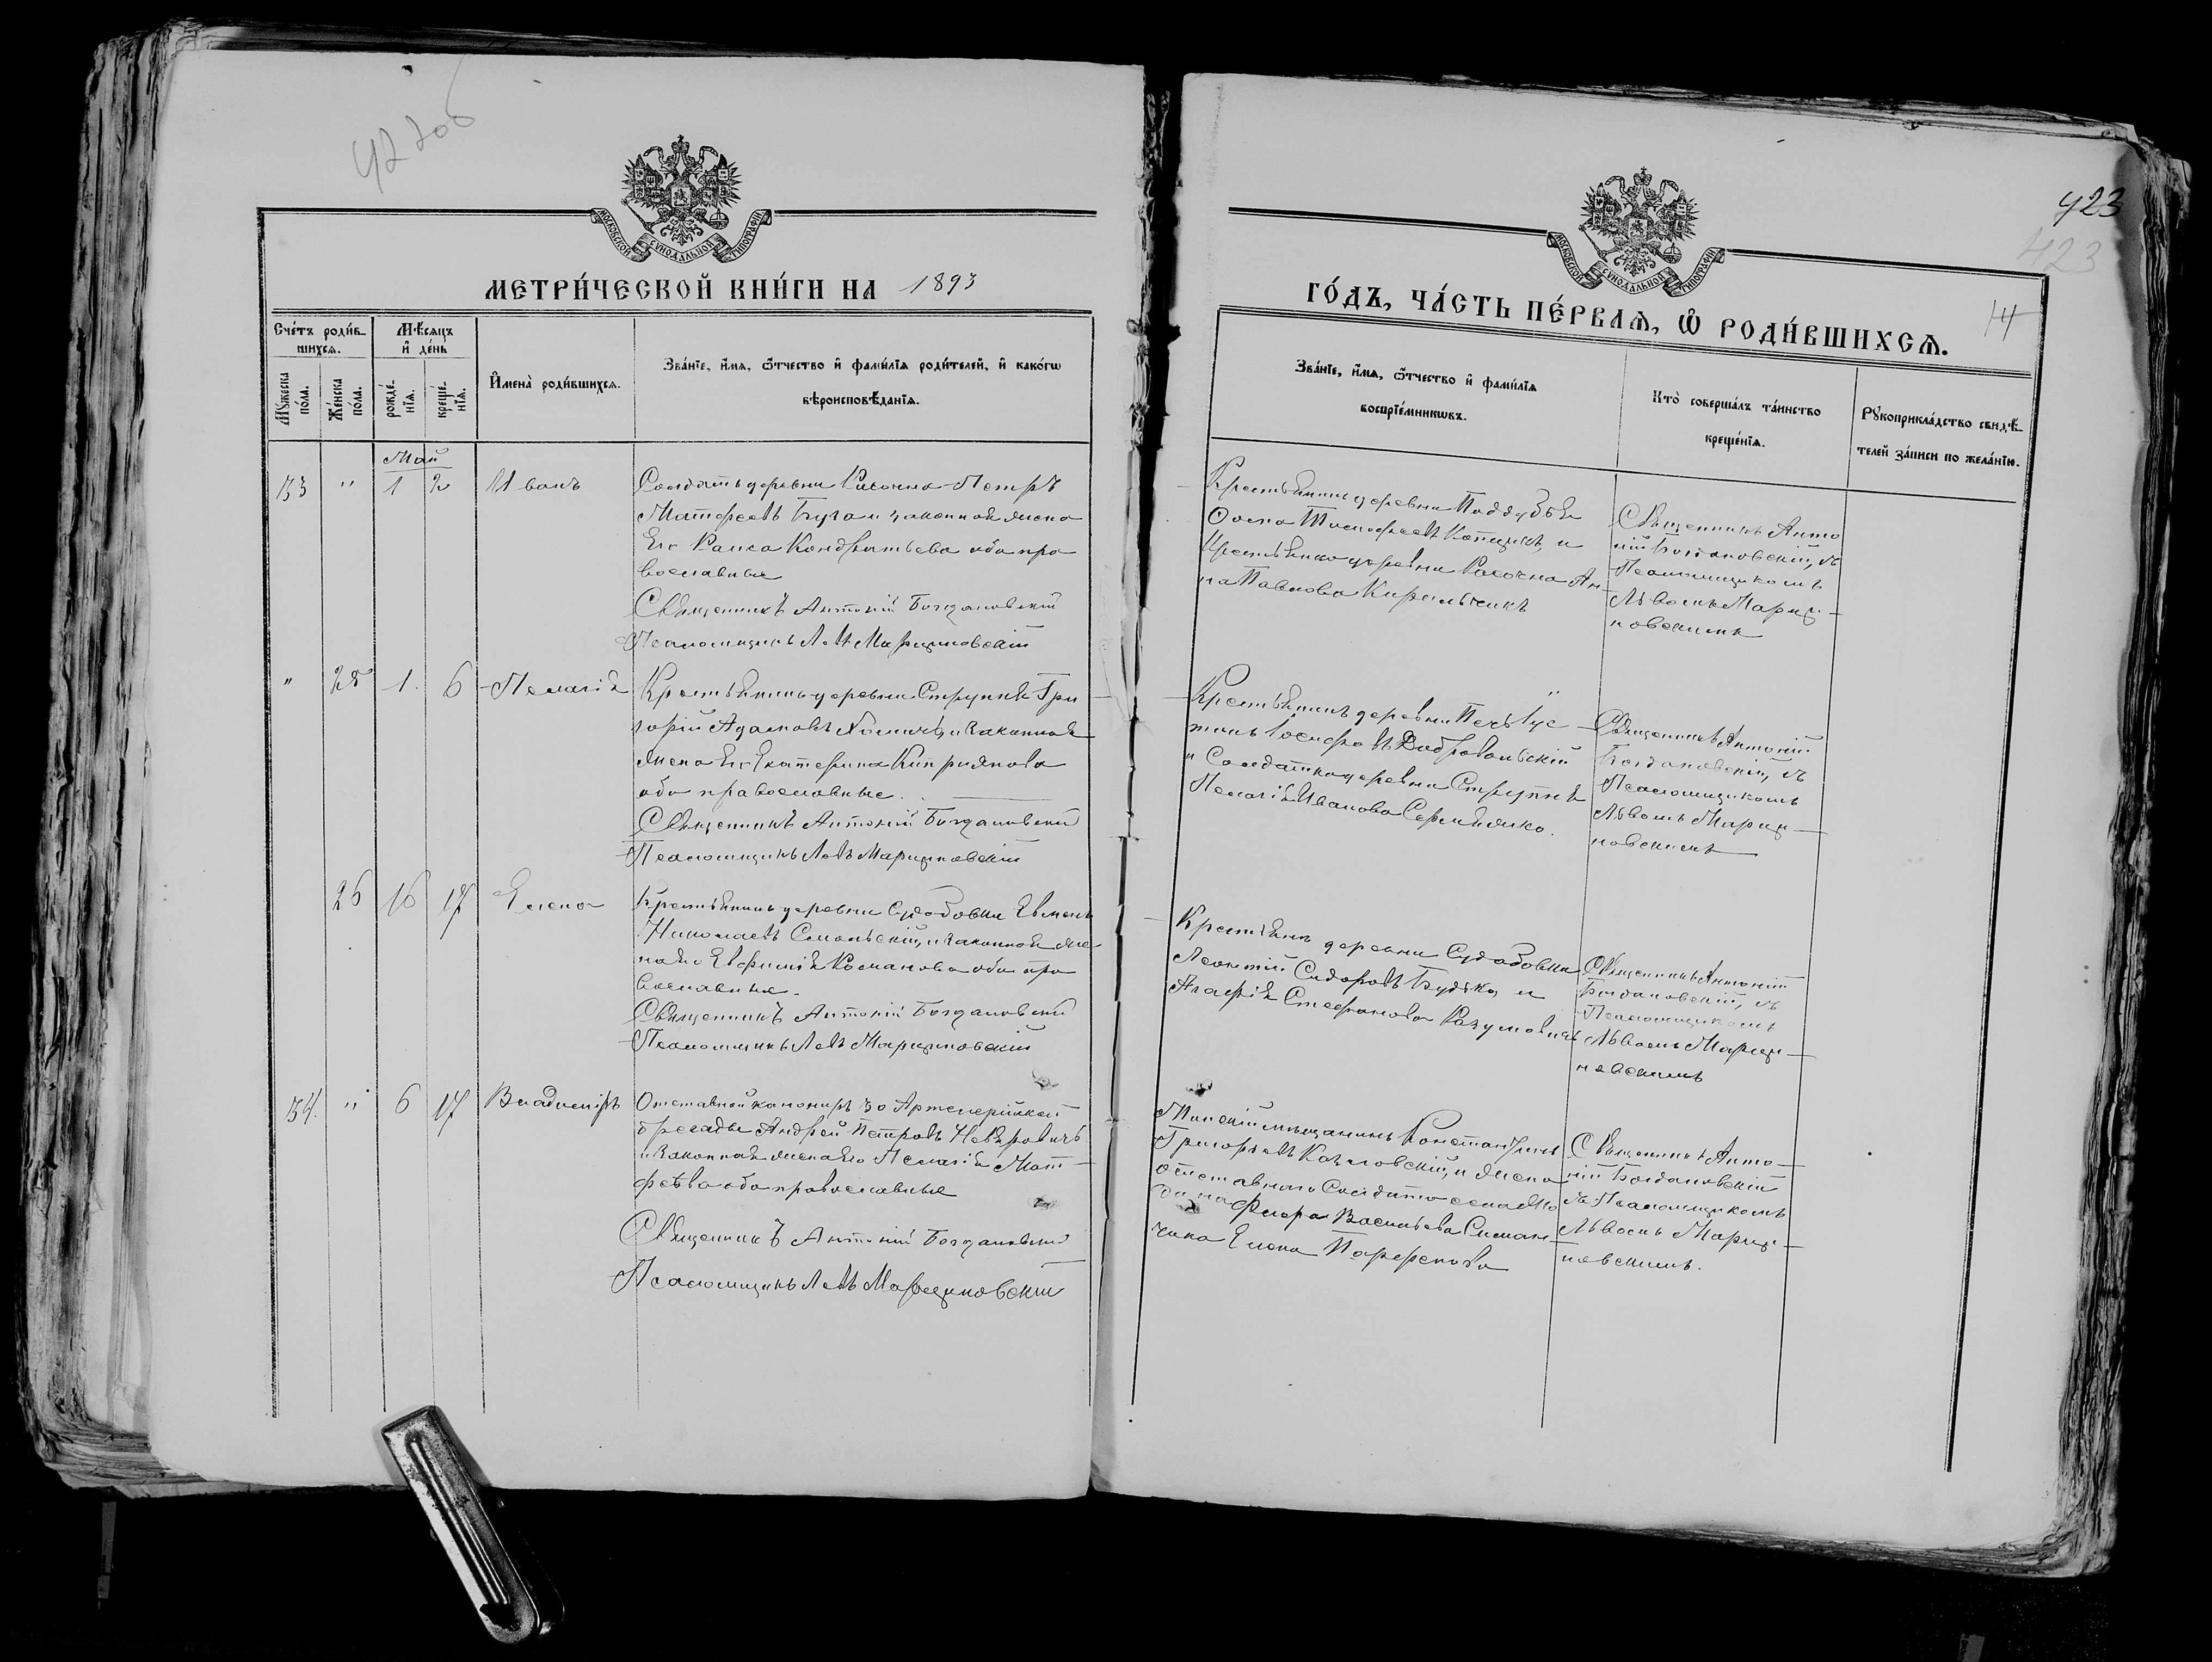 422об
МОСКОВСКОЙ СѴНОДАЛЬНОЙ ТИПОГРАФІИ
МЕТРИ́ЧЕСКОЙ КНИ́ГИ НА 1893
Сче́тъ роди́вшихся.
Мѣ́сяцъ и де́нь
Мꙋ́жеска по́ла.
Же́нска по́ла.
рожде́нїя.
креще́нїя.
И҆мена̀ роди́вшихся.
Зва́нїе, и҆́мя, ѻ҆́тчество и҆ фами́лїя роди́телей, и҆ како́гѡ
вѣроисповѣ́данїя.
Май
33 " 1 2 Иванъ
Солдатъ деревни Расочна Петръ
Матфеевъ Буга и законная жена
Его Раиса Кондратьева оба пра
вославные
Священникъ Антоній Богдановскій
Псаломщикъ Левъ Марциновскій
" 25 1 6 Пелагія
Крестьянинъ деревни Ступня Гри
горій Адамовъ и законная
жена Его Екатерина Киприянова
оба православные.
Священникъ Антоній Богдановскій
Псаломщикъ Левъ Марциновскій
26 16 17 Елена
Крестьянинъ деревни Судобовки
Николаевъ Смольскій, и законная же
на Его Евфимія Романова оба пра
вославные.
Священникъ Антоній Богдановскій
Псаломщикъ Левъ Марциновскій
34. " 6 17 Владиміръ
Отставной канониръ 30 Артилерійской
бригады Андрей Петровъ Невѣровичъ
и законная жена Его Пелагія Мат
фѣева оба православные
Священникъ Антоній Богдановскій
Псаломщикъ Левъ Марциновскій
423
423
14
МОСКОВСКОЙ СѴНОДАЛЬНОЙ ТИПОГРАФІИ
ГО́ДЪ, ЧА́СТЬ ПЕ́РВАѦ, Ѽ РОДИ́ВШИХСѦ.
Зва́нїе, и҆́мя, ѻ҆́тчество и҆ фами́лїя
воспрїе́мникѡвъ.
Кто̀ соверша́лъ та́инство
креще́нїя.
Рꙋкоприкла́дство свидѣ́
телей за́писи по жела́нїю.
Крестьянинъ деревни Поддубья
Фома Тимофеевъ и
Крестьянка деревни Расочна Ан
на Павлова Кирильчикъ
Священникъ Анто
ній Богдановскій, съ
Псаломщикомъ
Львомъ Марци
новскимъ
Крестьянинъ деревни Іус
тинъ Іосифовъ Добровольскій
и Солдатка деревни Ступня
Пелагія Иванова
Священникъ Антоній
Богдановскій, съ
Псаломщикомъ
Львомъ Марци
новскимъ
Крестьяне деревни Судобовки
Леонтій Сидоровъ Будько, и
Агафія Стефанова Разумовичъ
Священникъ Антоній
Богдановскій, съ
Псаломщикомъ
Львомъ Марци
новскимъ
Минскій мѣщанинъ Константинъ
Григорьевъ Козловскій, и жена
отставного Солдата
Флора Васильева Симан
чика Елена Парфенова
Священникъ Анто
ній Богдановскій
съ Псаломщикомъ
Львомъ Марци
новскимъ.